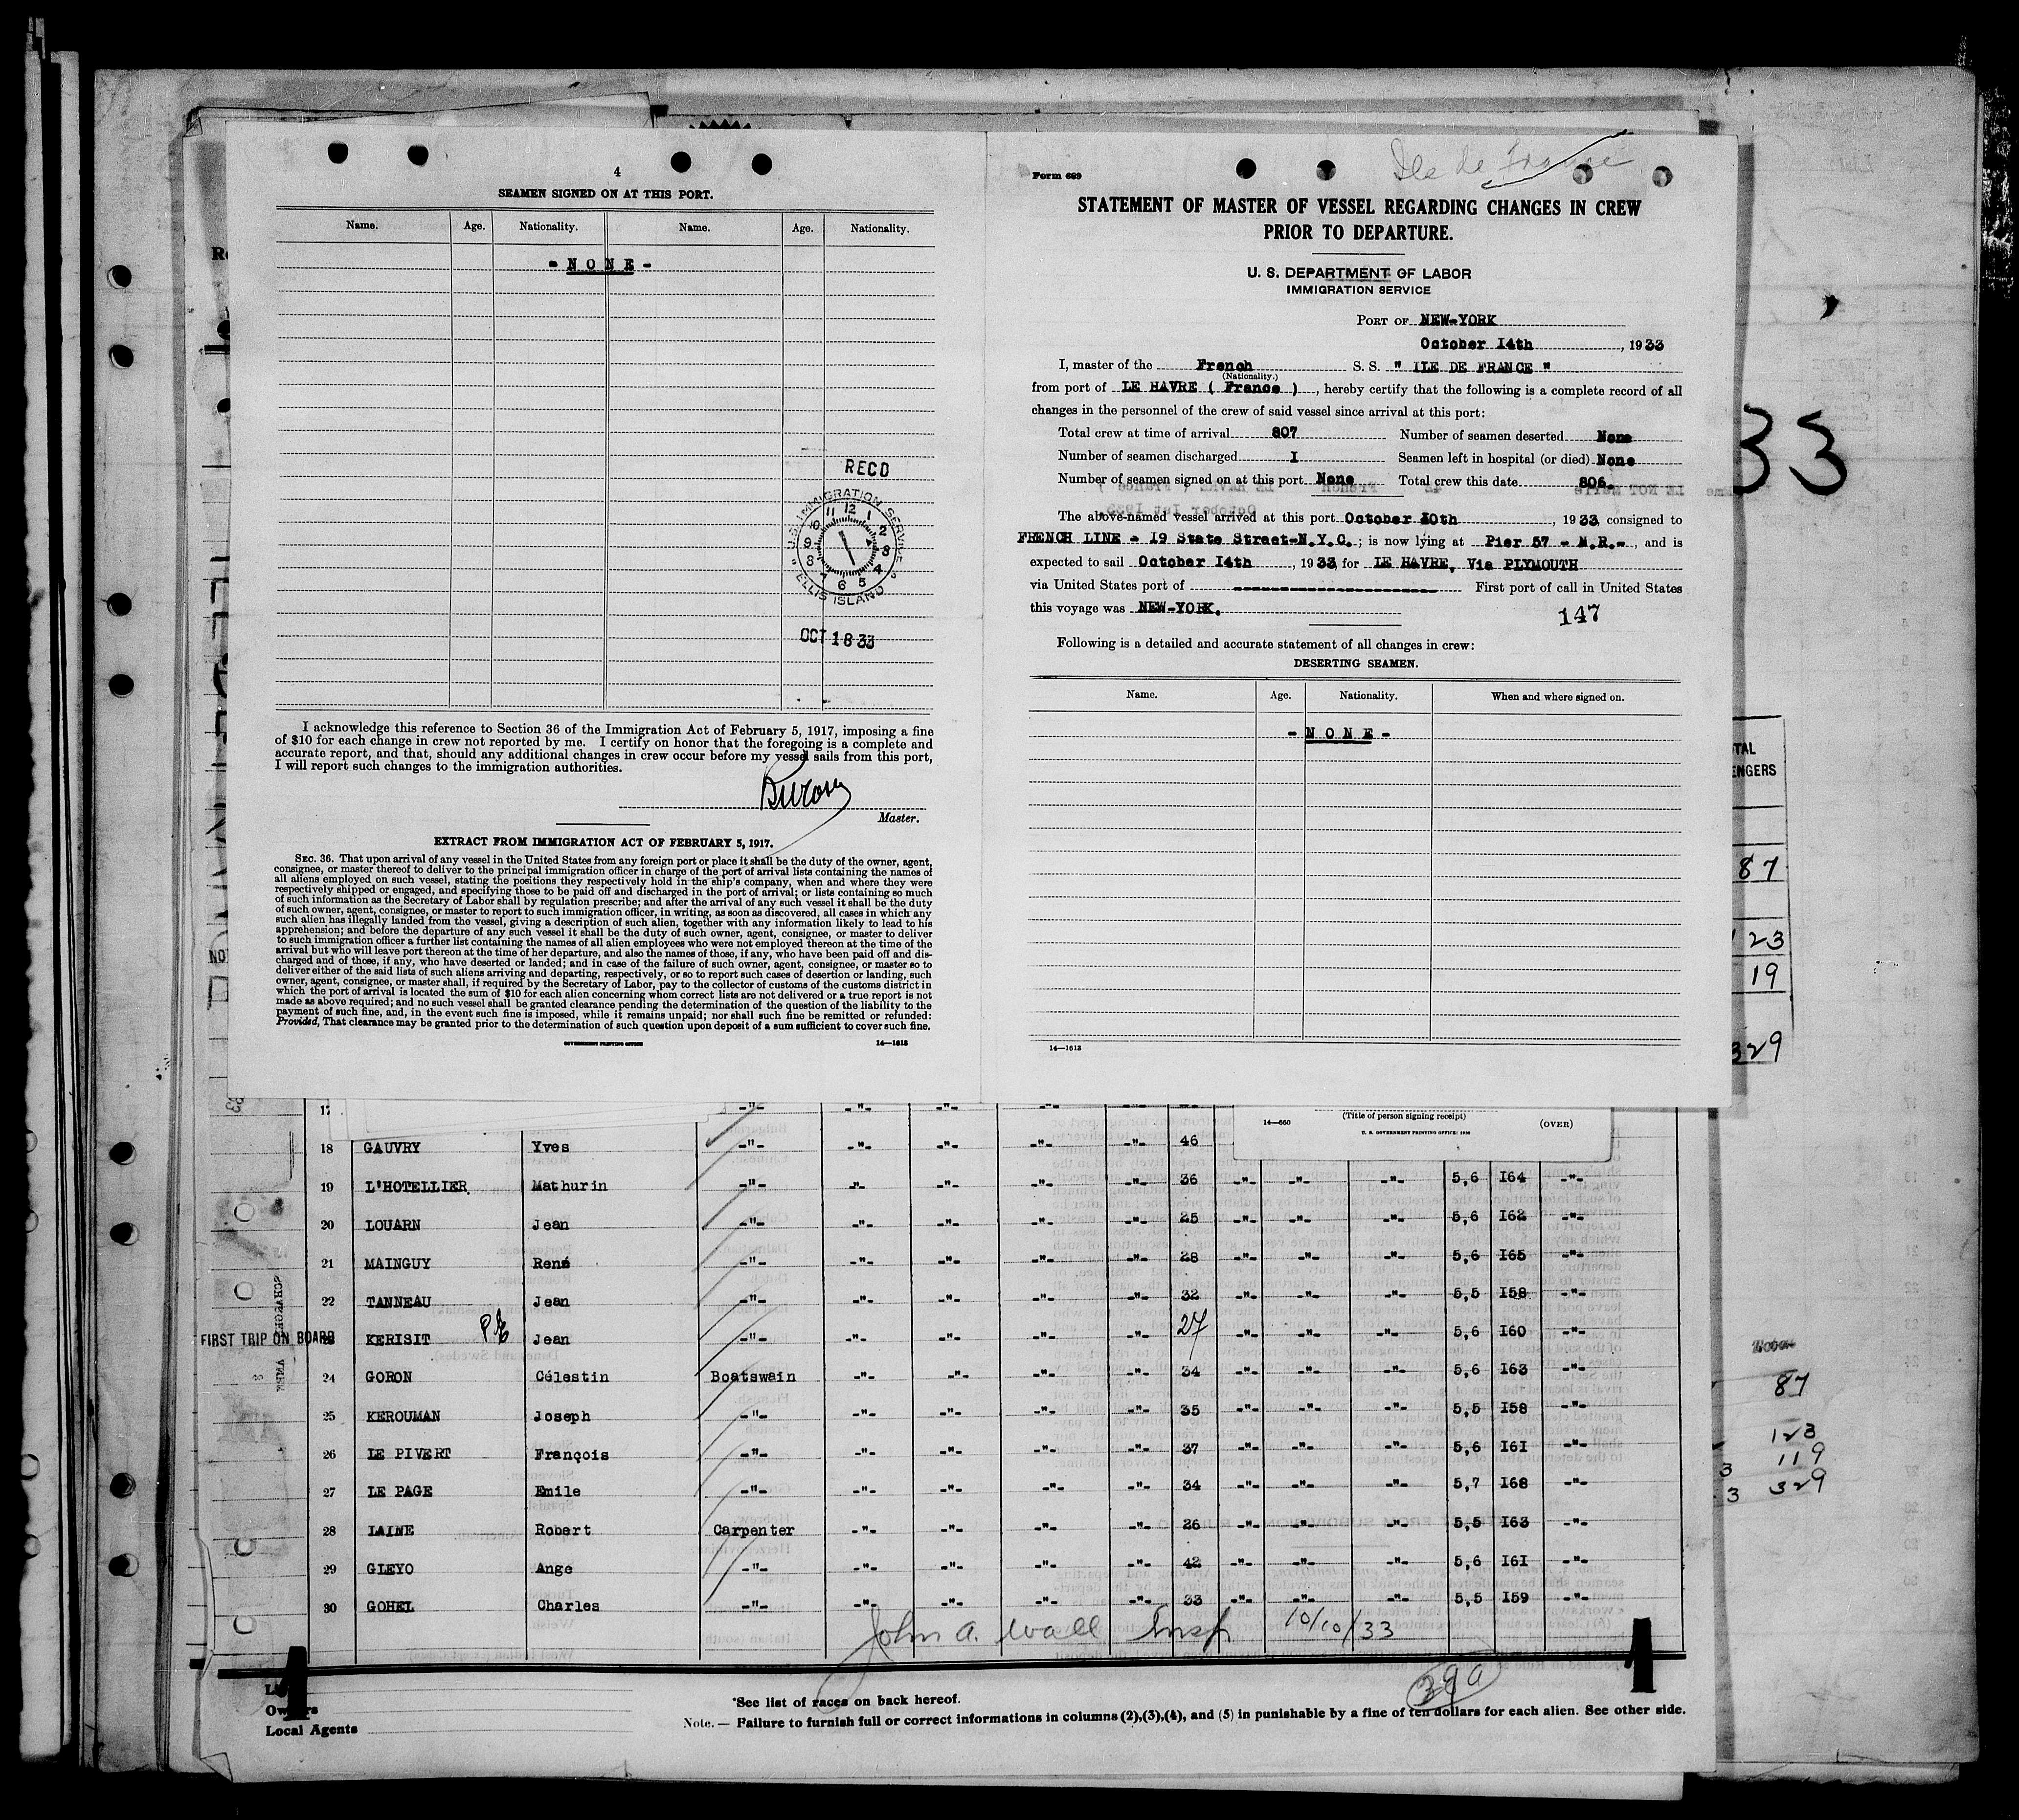 4
SEAMEN SIGNED ON AT THIS PORT.
Name. Age. Nationality. Name. Age. Nationality.
- N O N E -
RECD
U.S. IMMIGRATION SERVICE
ELLIS ISLAND
OCT 18 33
I acknowledge this reference to Section 36 of the Immigration Act of February 5, 1917, imposing a fine
of $10 for each change in crew not reported by me. I certify on honor that the foregoing is a complete and
accurate report, and that, should any additional changes in crew occur before my vessel sails from this port,
I will report such changes to the immigration authorities.
Master.
EXTRACT FROM IMMIGRATION ACT OF FEBRUARY 5, 1917.
SEC. 36. That upon arrival of any vessel in the United States from any foreign port or place it shall be the duty of the owner, agent,
consignee, or master thereof to deliver to the principal immigration officer in charge of the port of arrival lists containing the names of
all aliens employed on such vessel, stating the positions they respectively hold in the ship's company, when and where they were
respectively shipped or engaged, and specifying those to be paid off and discharged in the port of arrival; or lists containing so much
of such information as the Secretary of Labor shall by regulation prescribe; and after the arrival of any such vessel it shall be the duty
of such owner, agent, consignee, or master to report to such immigration officer, in writing, as soon as discovered, all cases in which any
such alien has illegally landed from the vessel, giving a description of such alien, together with any information likely to lead to his
apprehension; and before the departure of any such vessel it shall be the duty of such owner, agent, consignee, or master to deliver
to such immigration officer a further list containing the names of all alien employees who were not employed thereon at the time of the
arrival but who will leave port thereon at the time of her departure, and also the names of those, if any, who have been paid off and dis-
charged and of those, if any, who have deserted or landed; and in case of the failure of such owner, agent, consignee, or master so to
deliver either of the said lists of such aliens arriving and departing, respectively, or so to report such cases of desertion or landing, such
owner, agent, consignee, or master shall, if required by the Secretary of Labor, pay to the collector of customs of the customs district in
which the port of arrival is located the sum of $10 for each alien concerning whom correct lists are not delivered or a true report is not
made as above required; and no such vessel shall be granted clearance pending the determination of the question of the liability to the
payment of such fine, and, in the event such fine is imposed, while it remains unpaid; nor shall such fine be remitted or refunded:
Provided, That clearance may be granted prior to the determination of such question upon deposit of a sum sufficient to cover such fine.
GOVERNMENT PRINTING OFFICE 14—1613
Ile de France
Form 689
STATEMENT OF MASTER OF VESSEL REGARDING CHANGES IN CREW
PRIOR TO DEPARTURE.
U. S. DEPARTMENT OF LABOR
IMMIGRATION SERVICE
PORT OF NEW-YORK
October 14th, 1933
I, master of the French S. S. " ILE DE FRANCE "
(Nationality.)
from port of LE HAVRE ( France ), hereby certify that the following is a complete record of all
changes in the personnel of the crew of said vessel since arrival at this port:
Total crew at time of arrival 807 Number of seamen deserted None
Number of seamen discharged I Seamen left in hospital (or died) None
Number of seamen signed on at this port None Total crew this date 806.
The above-named vessel arrived at this port October 10th, 1933 consigned to
FRENCH LINE - 19 State Street-N.Y.C.; is now lying at Pier 57 - N.R.-, and is
expected to sail October 14th, 1933 for LE HAVRE, Via PLYMOUTH
via United States port of ---------- First port of call in United States
this voyage was NEW-YORK.
147
Following is a detailed and accurate statement of all changes in crew:
DESERTING SEAMEN.
Name. Age. Nationality. When and where signed on.
- N O N E -
14—1613
33
TAL
ENGERS
87
123
19
329
(Title of person signing receipt)
14—660 U. S. GOVERNMENT PRINTING OFFICE: 1930 (OVER)
17 -"- -"- -"- -"- -"-
18 GAUVRY Yves -"- -"- -"- -"- -"- 46
19 L'HOTELLIER Mathurin -"- -"- -"- -"- -"- 36 -"- -"- -"- 5,6 I64 -"-
20 LOUARN Jean -"- -"- -"- -"- -"- 25 -"- -"- -"- 5,6 I62 -"-
21 MAINGUY René -"- -"- -"- -"- -"- 28 -"- -"- -"- 5,6 I65 -"-
22 TANNEAU Jean -"- -"- -"- -"- -"- 32 -"- -"- -"- 5,5 I58 -"-
FIRST TRIP ON BOARD 23 KERISIT Jean -"- -"- -"- -"- -"- 27 -"- -"- -"- 5,6 I60 -"-
24 GORON Célestin Boatswain -"- -"- -"- -"- 34 -"- -"- -"- 5,6 I63 -"-
25 KEROUMAN Joseph -"- -"- -"- -"- -"- 35 -"- -"- -"- 5,5 I58 -"-
26 LE PIVERT François -"- -"- -"- -"- -"- 37 -"- -"- -"- 5,6 I6I -"-
27 LE PAGE Emile -"- -"- -"- -"- -"- 34 -"- -"- -"- 5,7 I68 -"-
28 LAINE Robert Carpenter -"- -"- -"- -"- 26 -"- -"- -"- 5,5 I63 -"-
29 GLEYO Ange -"- -"- -"- -"- -"- 42 -"- -"- -"- 5,6 I6I -"-
30 GOHEL Charles -"- -"- -"- -"- -"- 33 -"- -"- -"- 5,5 I59 -"-
John A. Wall Insp. 10/10/33
87
123
3 119
3 329
Owners
Local Agents
*See list of races on back hereof.
Note. — Failure to furnish full or correct informations in columns (2),(3),(4), and (5) in punishable by a fine of ten dollars for each alien. See other side.